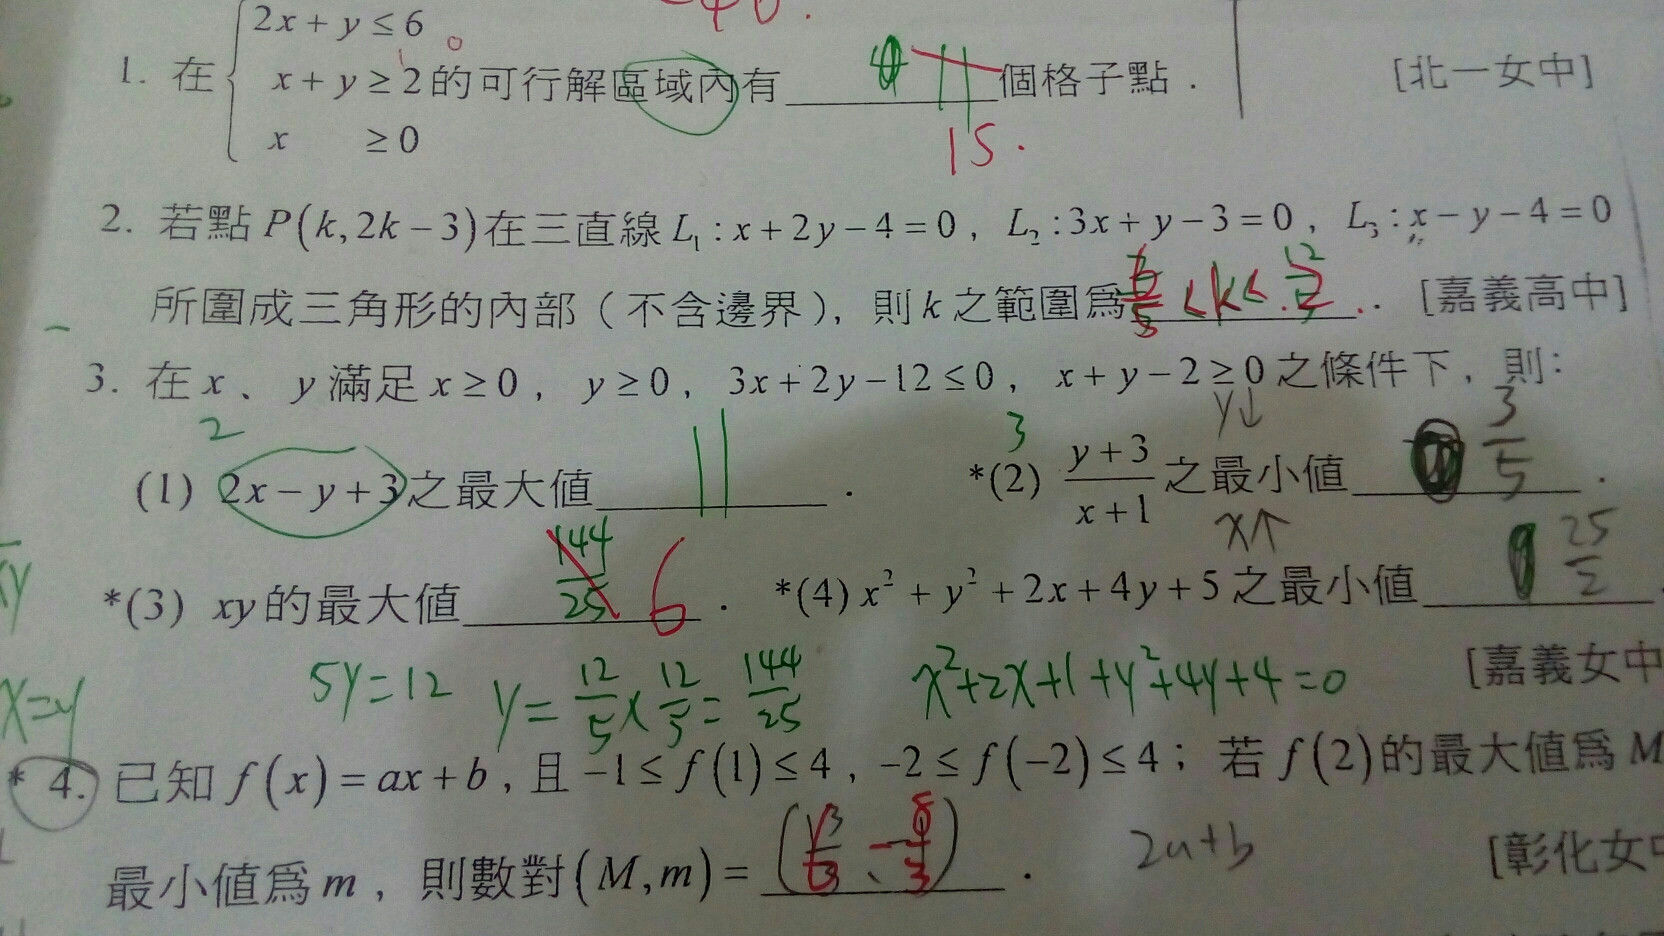 -40.
2x + y ≤ 6
1. 在 x + y ≥ 2 的可行解區域內有 11 個格子點． [北一女中]
x ≥ 0
15.
2. 若點 P(k, 2k − 3) 在三直線 L₁ : x + 2y − 4 = 0 , L₂ : 3x + y − 3 = 0 , L₃ : x − y − 4 = 0
所圍成三角形的內部（不含邊界），則 k 之範圍為 < k < ． [嘉義高中]
3. 在 x 、 y 滿足 x ≥ 0 , y ≥ 0 , 3x + 2y − 12 ≤ 0 , x + y − 2 ≥ 0 之條件下，則：
2 3 y↓
(1) 2x − y + 3 之最大值 11 ． *(2) (y + 3)/(x + 1) 之最小值 3/5 ．
x↑
*(3) xy 的最大值 144/25 6 ． *(4) x² + y² + 2x + 4y + 5 之最小值 25/2
[嘉義女中
5y=12 y=12/5×12/5=144/25 x²+2x+1+y²+4y+4=0
x=y
* 4. 已知 f(x) = ax + b , 且 −1 ≤ f(1) ≤ 4 , −2 ≤ f(−2) ≤ 4；若 f(2) 的最大值為 M
最小值為 m , 則數對 (M, m) = ． 2a+b [彰化女